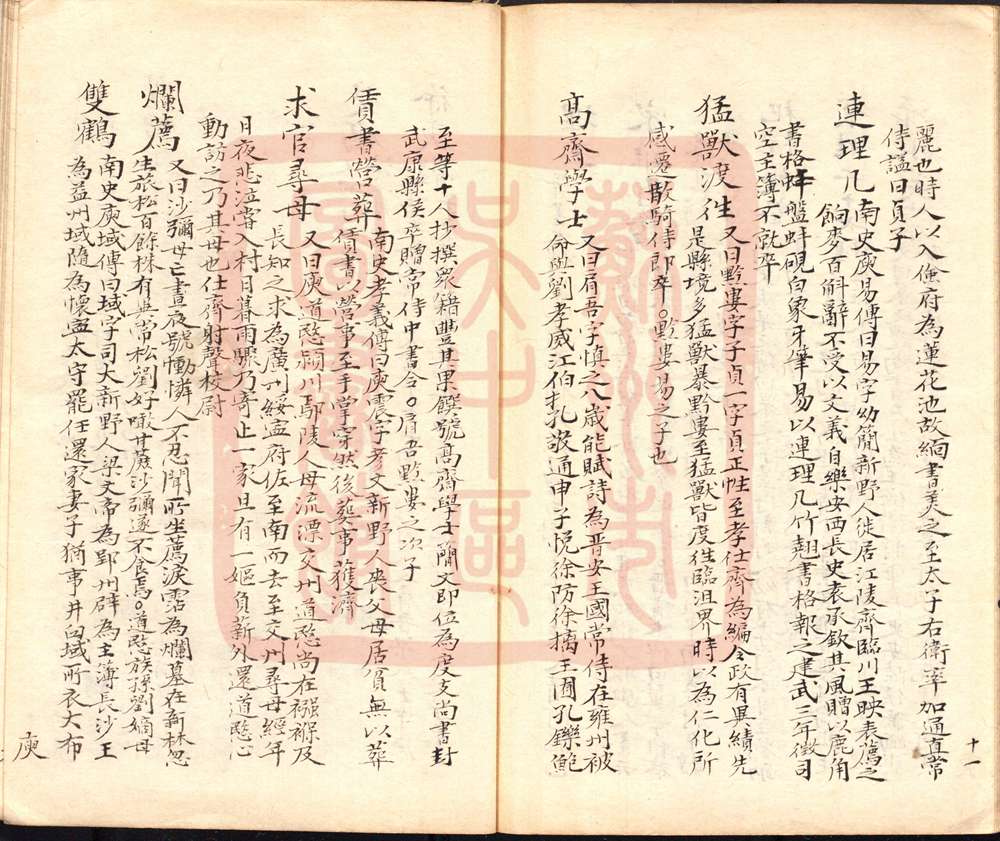 麗也時人以入儉府為蓮花池故緬書美之至太子右衛率加通直常
侍謚曰貞子
連理几
南史庾易傳曰易字幼簡新野人徙居江陵齊臨川王映表薦之
餉麥百斛辭不受以文義自樂安西長史袁承欽其風贈以鹿角
書格蚌盤蚌硯白象牙筆易以連理几竹翹書格報之建武三年徵司
空主簿不就卒
猛獸渡徃
又曰黔婁字子貞一字貞正性至孝仕齊為編令政有異績先
是縣境多猛獸暴黔婁至猛獸皆度徃臨沮界時以為仁化所
感遷散騎侍郎卒。黔婁易之子也
高齋學士
又曰肩吾字慎之八歲能賦詩為晋安王國常侍在雍州被
命與劉孝威江伯扎敬通申子悅徐防徐摛王囿孔鑠鮑
至等十人抄撰衆籍豐其果饌號高齋學士簡文即位為度支尚書封
武康縣侯卒贈常侍中書令。肩吾黔婁之次子
賃書營葬
南史孝義傳曰庾震字孝文新野人喪父母居貧無以葬
賃書以營事至手掌穿然後葬事獲濟
求官尋母
又曰庾道愍潁川鄢陵人母流漂交州道愍尚在襁褓及
長知之求為廣州綏寧府佐至南而去至交州尋母經年
日夜悲泣嘗入村日暮雨驟乃寄止一家旦有一嫗負薪外還道愍心
動訪之乃其母也仕齊射聲校尉
爛薦
又曰沙彌母亡晝夜號慟憐人不忍聞所坐薦淚霑為爛墓在新林忽
生旅松百餘株有異常松劉好噉甘蔗沙彌遂不食焉。道愍族孫劉嫡母
雙鶴
南史庾域傳曰域字司大新野人梁文帝為郢州辟為主簿長沙王
為益州域隨為懷寧太守罷任還家妻子猶事井臼域所衣大布
十一
庾